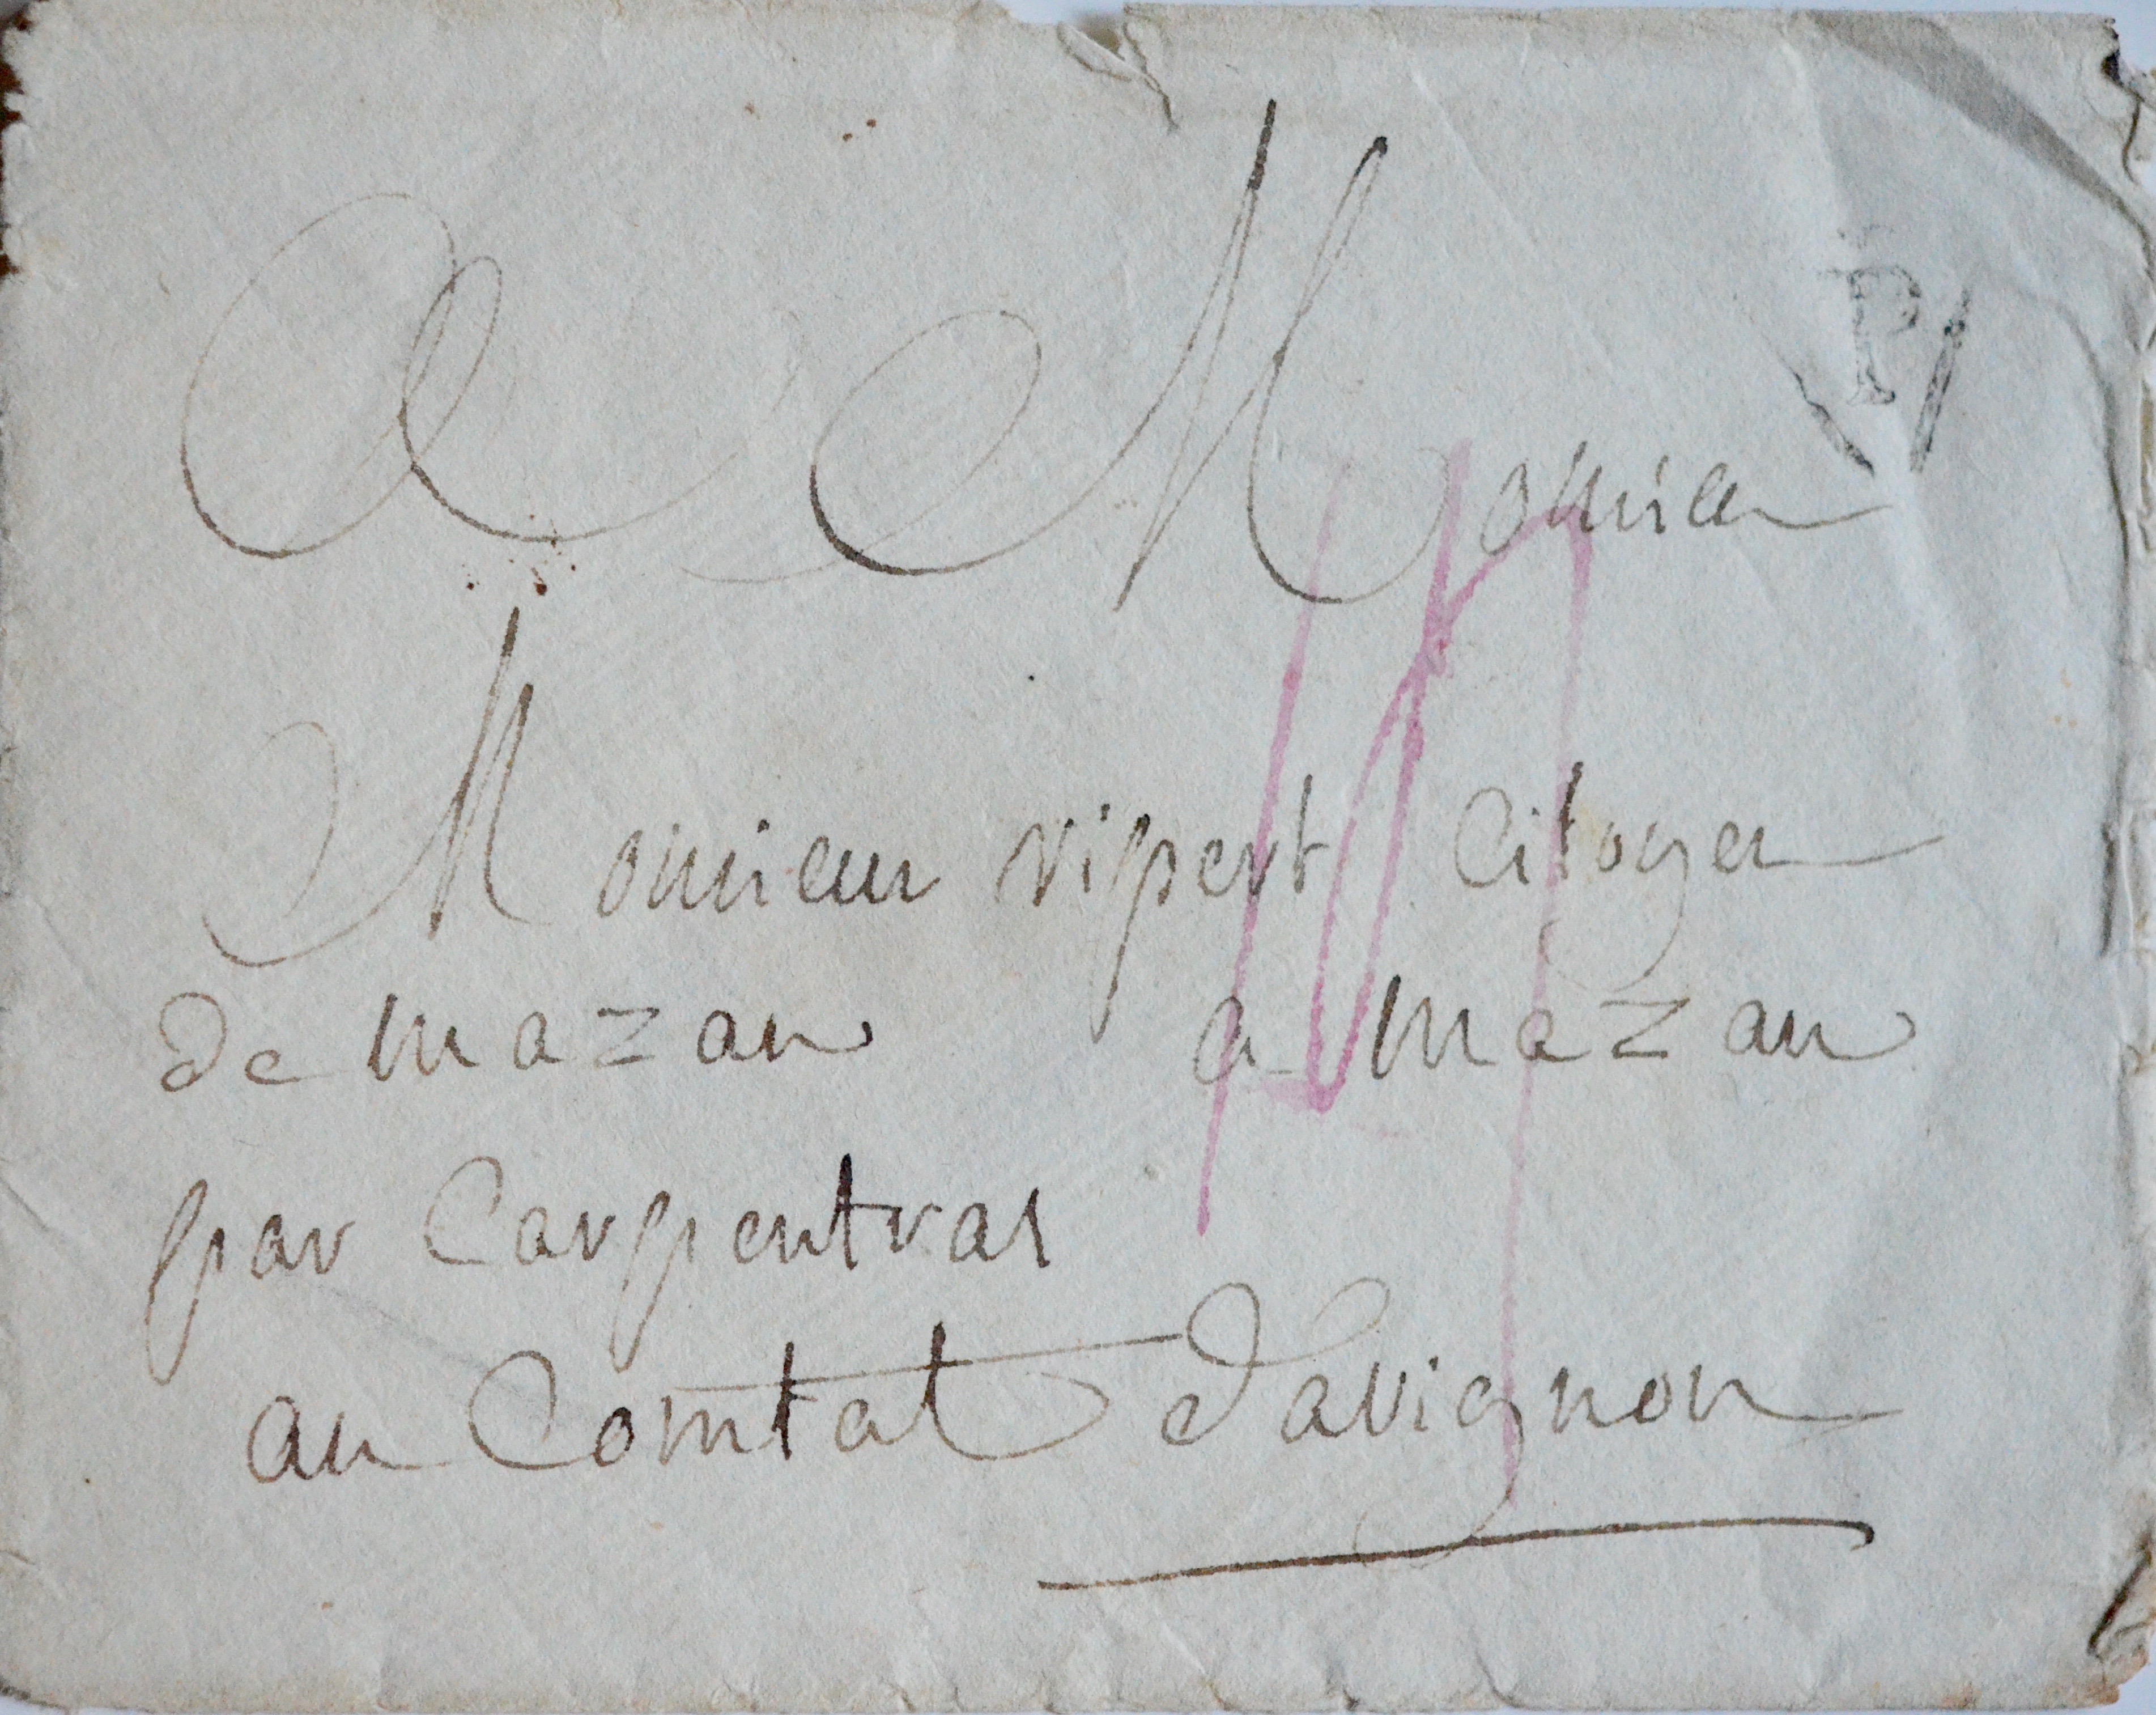 P
A Monsieur
Monsieur vipert Citoyen
de mazan a mazan
par Carpentras
au Comtat davignon